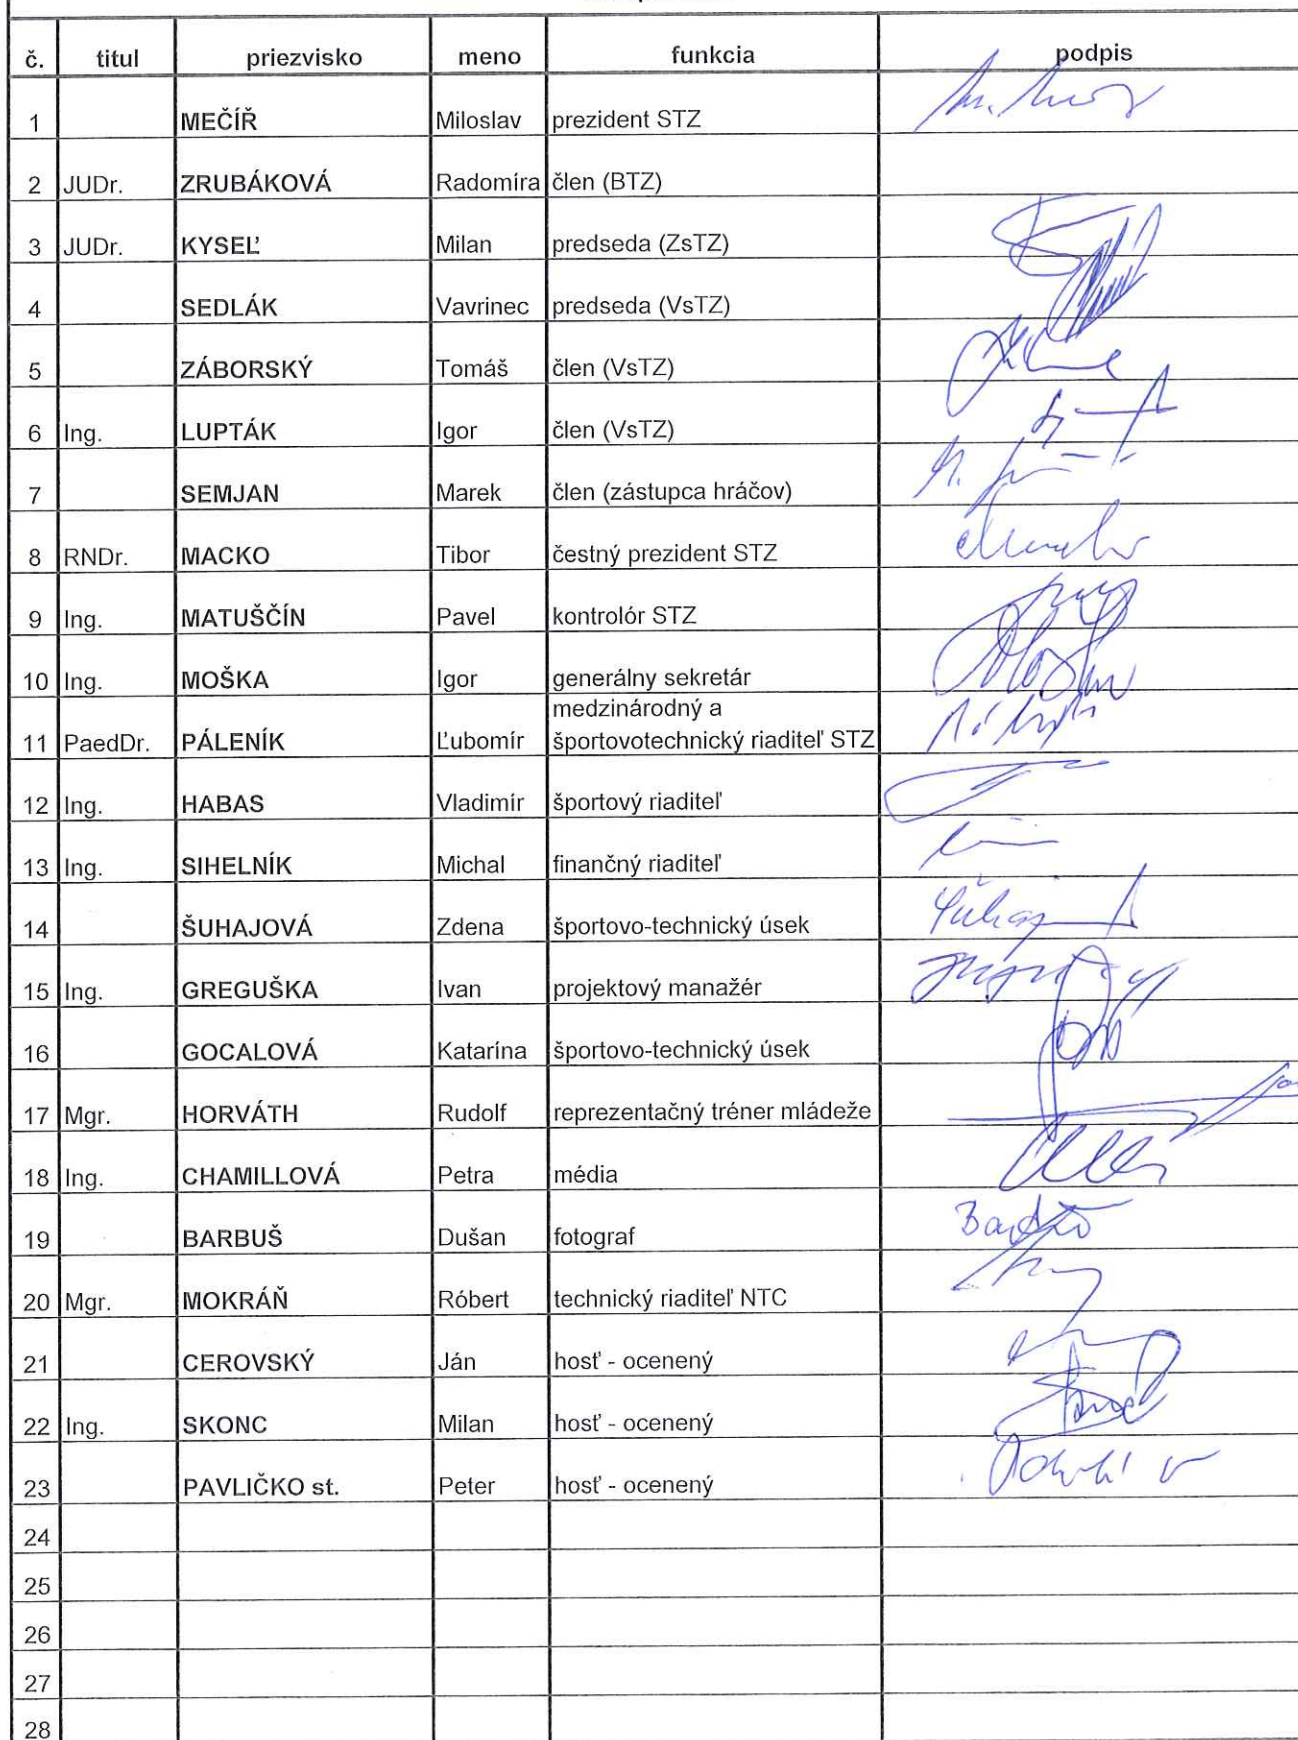 č. titul priezvisko meno funkcia podpis
1 MEČÍŘ Miloslav prezident STZ
2 JUDr. ZRUBÁKOVÁ Radomíra člen (BTZ)
3 JUDr. KYSEĽ Milan predseda (ZsTZ)
4 SEDLÁK Vavrinec predseda (VsTZ)
5 ZÁBORSKÝ Tomáš člen (VsTZ)
6 Ing. LUPTÁK Igor člen (VsTZ)
7 SEMJAN Marek člen (zástupca hráčov)
8 RNDr. MACKO Tibor čestný prezident STZ
9 Ing. MATUŠČÍN Pavel kontrolór STZ
10 Ing. MOŠKA Igor generálny sekretár
medzinárodný a
11 PaedDr. PÁLENÍK Ľubomír športovotechnický riaditeľ STZ
12 Ing. HABAS Vladimír športový riaditeľ
13 Ing. SIHELNÍK Michal finančný riaditeľ
14 ŠUHAJOVÁ Zdena športovo-technický úsek
15 Ing. GREGUŠKA Ivan projektový manažér
16 GOCALOVÁ Katarína športovo-technický úsek
17 Mgr. HORVÁTH Rudolf reprezentačný tréner mládeže
18 Ing. CHAMILLOVÁ Petra média
19 BARBUŠ Dušan fotograf
20 Mgr. MOKRÁŇ Róbert technický riaditeľ NTC
21 CEROVSKÝ Ján hosť - ocenený
22 Ing. SKONC Milan hosť - ocenený
23 PAVLIČKO st. Peter hosť - ocenený
24
25
26
27
28